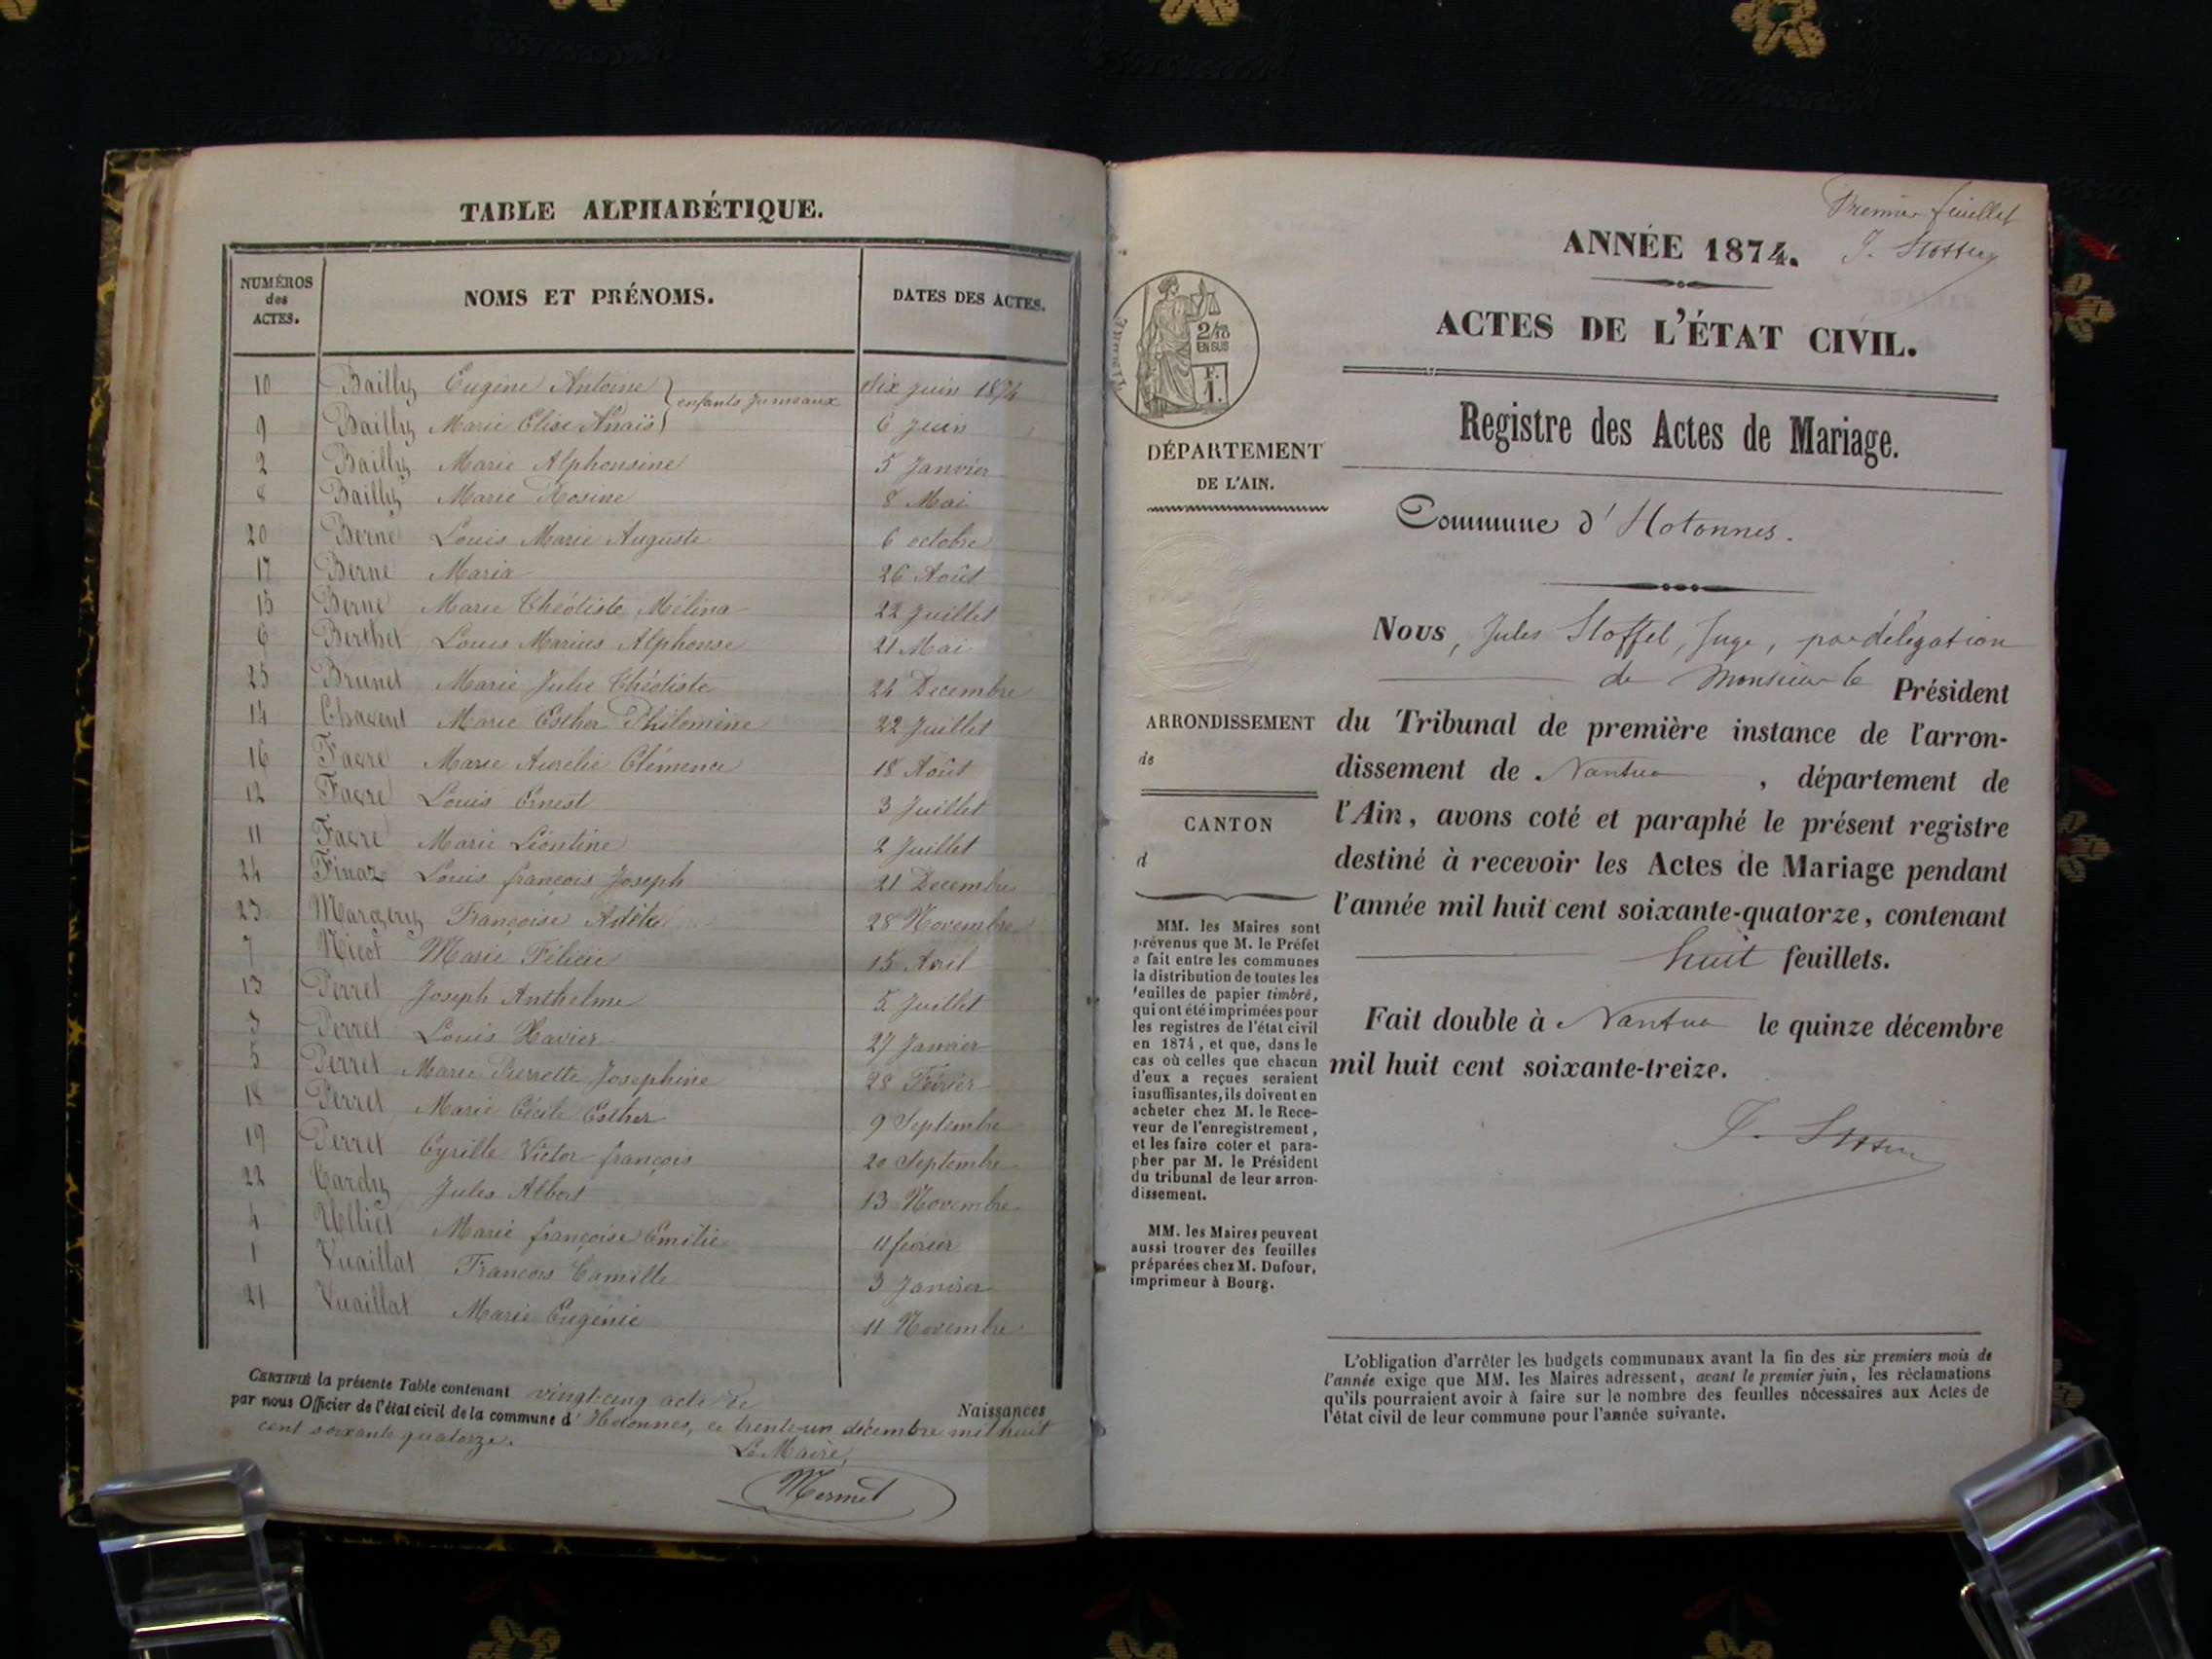 TABLE ALPHABÉTIQUE.
NUMÉROS des ACTES. NOMS ET PRÉNOMS. DATES DES ACTES.
10 Bailly Eugène Antoine } enfants jumeaux Six juin 1874
9 Bailly Marie Elise Anaïs } 6 Juin
2 Bailly Marie Alphonsine 5 Janvier
8 Bailly Marie Rosine 8 Mai
20 Berne Louis Marie Auguste 6 octobre
17 Berne Maria 26 Août
15 Berne Marie Théotiste Mélina 22 Juillet
6 Berthet Louis Marius Alphonse 21 Mai
25 Brunet Marie Julie Théotiste 24 Decembre
14 Chavent Marie Esther Philomène 22 Juillet
16 Favre Marie Aurélie Clémence 18 Août
12 Favre Louis Ernest 3 Juillet
11 Favre Marie Léontine 2 Juillet
24 Finaz Louis françois Joseph 21 Decembre
23 Margery Françoise Adèle 28 Novembre
7 Nicot Marie Félicie 15 Avril
13 Perret Joseph Anthelme 5 Juillet
3 Perret Louis Xavier 27 Janvier
5 Perret Marie Pierrette Josephine 28 Février
18 Perret Marie Cécile Esther 9 Septembre
19 Perret Cyrille Victor françois 20 Septembre
22 Tardy Jules Albert 13 Novembre
4 Ulliet Marie françoise Emilie 11 février
1 Vuaillat François Camille 3 Janvier
21 Vuaillat Marie Eugénie 11 Novembre
CERTIFIÉ la présente Table contenant vingt-cinq acte de Naissances
par nous Officier de l'état civil de la commune d'Hotonnes, ce trente-un décembre mil huit
cent soixante quatorze.
Le Maire,
Mermet
Premier feuillet
J. Stoffel
ANNÉE 1874.
ACTES DE L'ÉTAT CIVIL.
Registre des Actes de Mariage.
Commune d'Hotonnes.
2/10
EN SUS
F.
1.
DÉPARTEMENT
DE L'AIN.
ARRONDISSEMENT
de
CANTON
d
MM. les Maires sont
prévenus que M. le Préfet
a fait entre les communes
la distribution de toutes les
feuilles de papier timbré,
qui ont été imprimées pour
les registres de l'état civil
en 1874, et que, dans le
cas où celles que chacun
d'eux a reçues seraient
insuffisantes, ils doivent en
acheter chez M. le Rece-
veur de l'enregistrement,
et les faire coter et para-
pher par M. le Président
du tribunal de leur arron-
dissement.
MM. les Maires peuvent
aussi trouver des feuilles
préparées chez M. Dufour,
imprimeur à Bourg.
Nous, Jules Stoffel, Juge, par délégation
de Monsieur le Président
du Tribunal de première instance de l'arron-
dissement de Nantua, département de
l'Ain, avons coté et paraphé le présent registre
destiné à recevoir les Actes de Mariage pendant
l'année mil huit cent soixante-quatorze, contenant
huit feuillets.
Fait double à Nantua le quinze décembre
mil huit cent soixante-treize.
J. Stoffel
L'obligation d'arrêter les budgets communaux avant la fin des six premiers mois de
l'année exige que MM. les Maires adressent, avant le premier juin, les réclamations
qu'ils pourraient avoir à faire sur le nombre des feuilles nécessaires aux Actes de
l'état civil de leur commune pour l'année suivante.